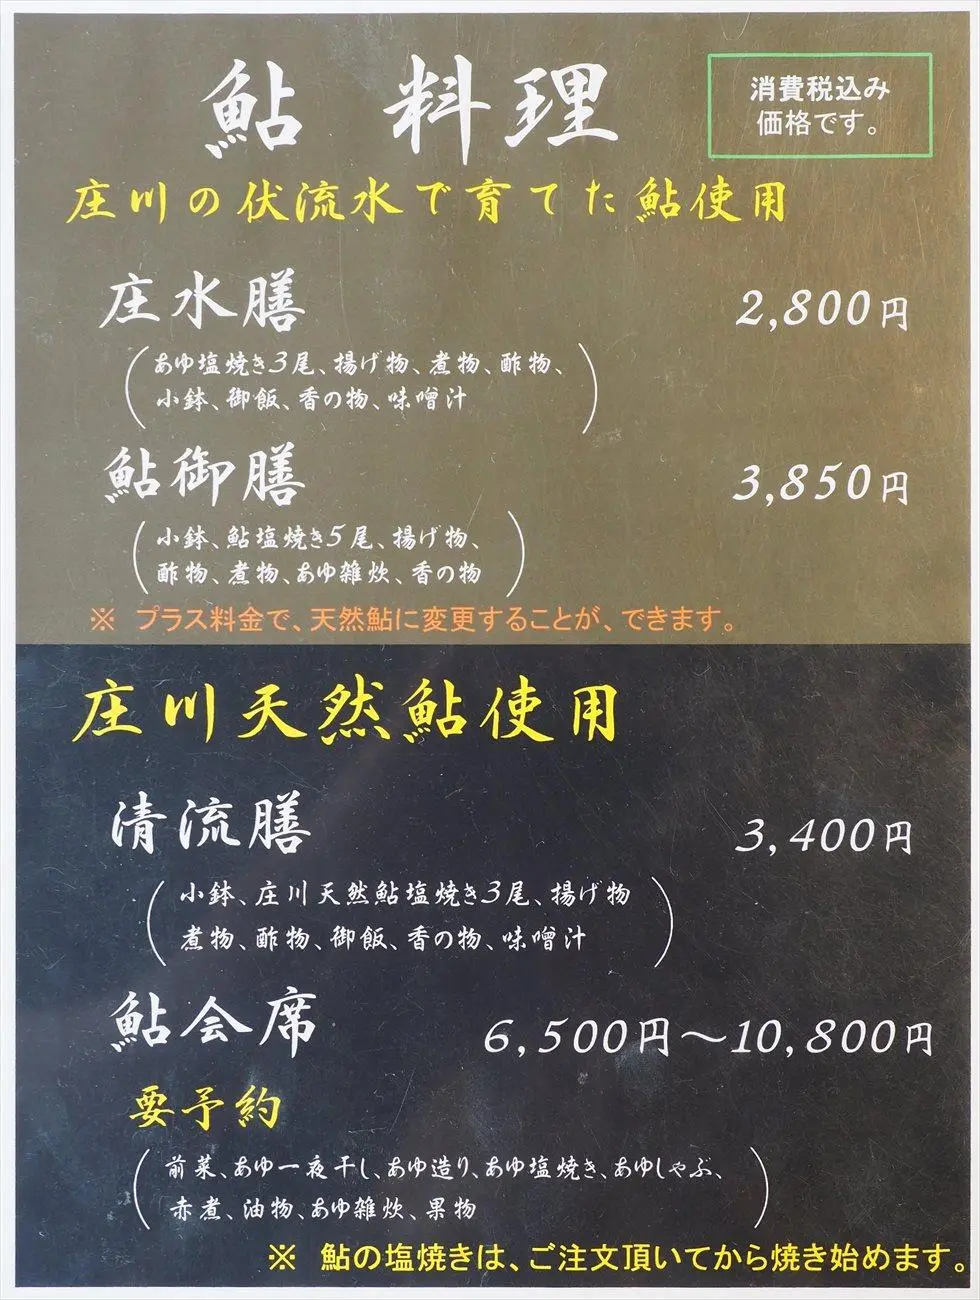 鮎 料理
消費税込み
価格です。
庄川の伏流水で育てた鮎使用
庄水膳 2,800円
(あゆ塩焼き3尾、揚げ物、煮物、酢物、
小鉢、御飯、香の物、味噌汁)
鮎御膳 3,850円
(小鉢、鮎塩焼き5尾、揚げ物、
酢物、煮物、あゆ雑炊、香の物)
※ プラス料金で、天然鮎に変更することが、できます。
庄川天然鮎使用
清流膳 3,400円
(小鉢、庄川天然鮎塩焼き3尾、揚げ物
煮物、酢物、御飯、香の物、味噌汁)
鮎会席 6,500円～10,800円
要予約
(前菜、あゆ一夜干し、あゆ造り、あゆ塩焼き、あゆしゃぶ、
赤煮、油物、あゆ雑炊、果物)
※ 鮎の塩焼きは、ご注文頂いてから焼き始めます。